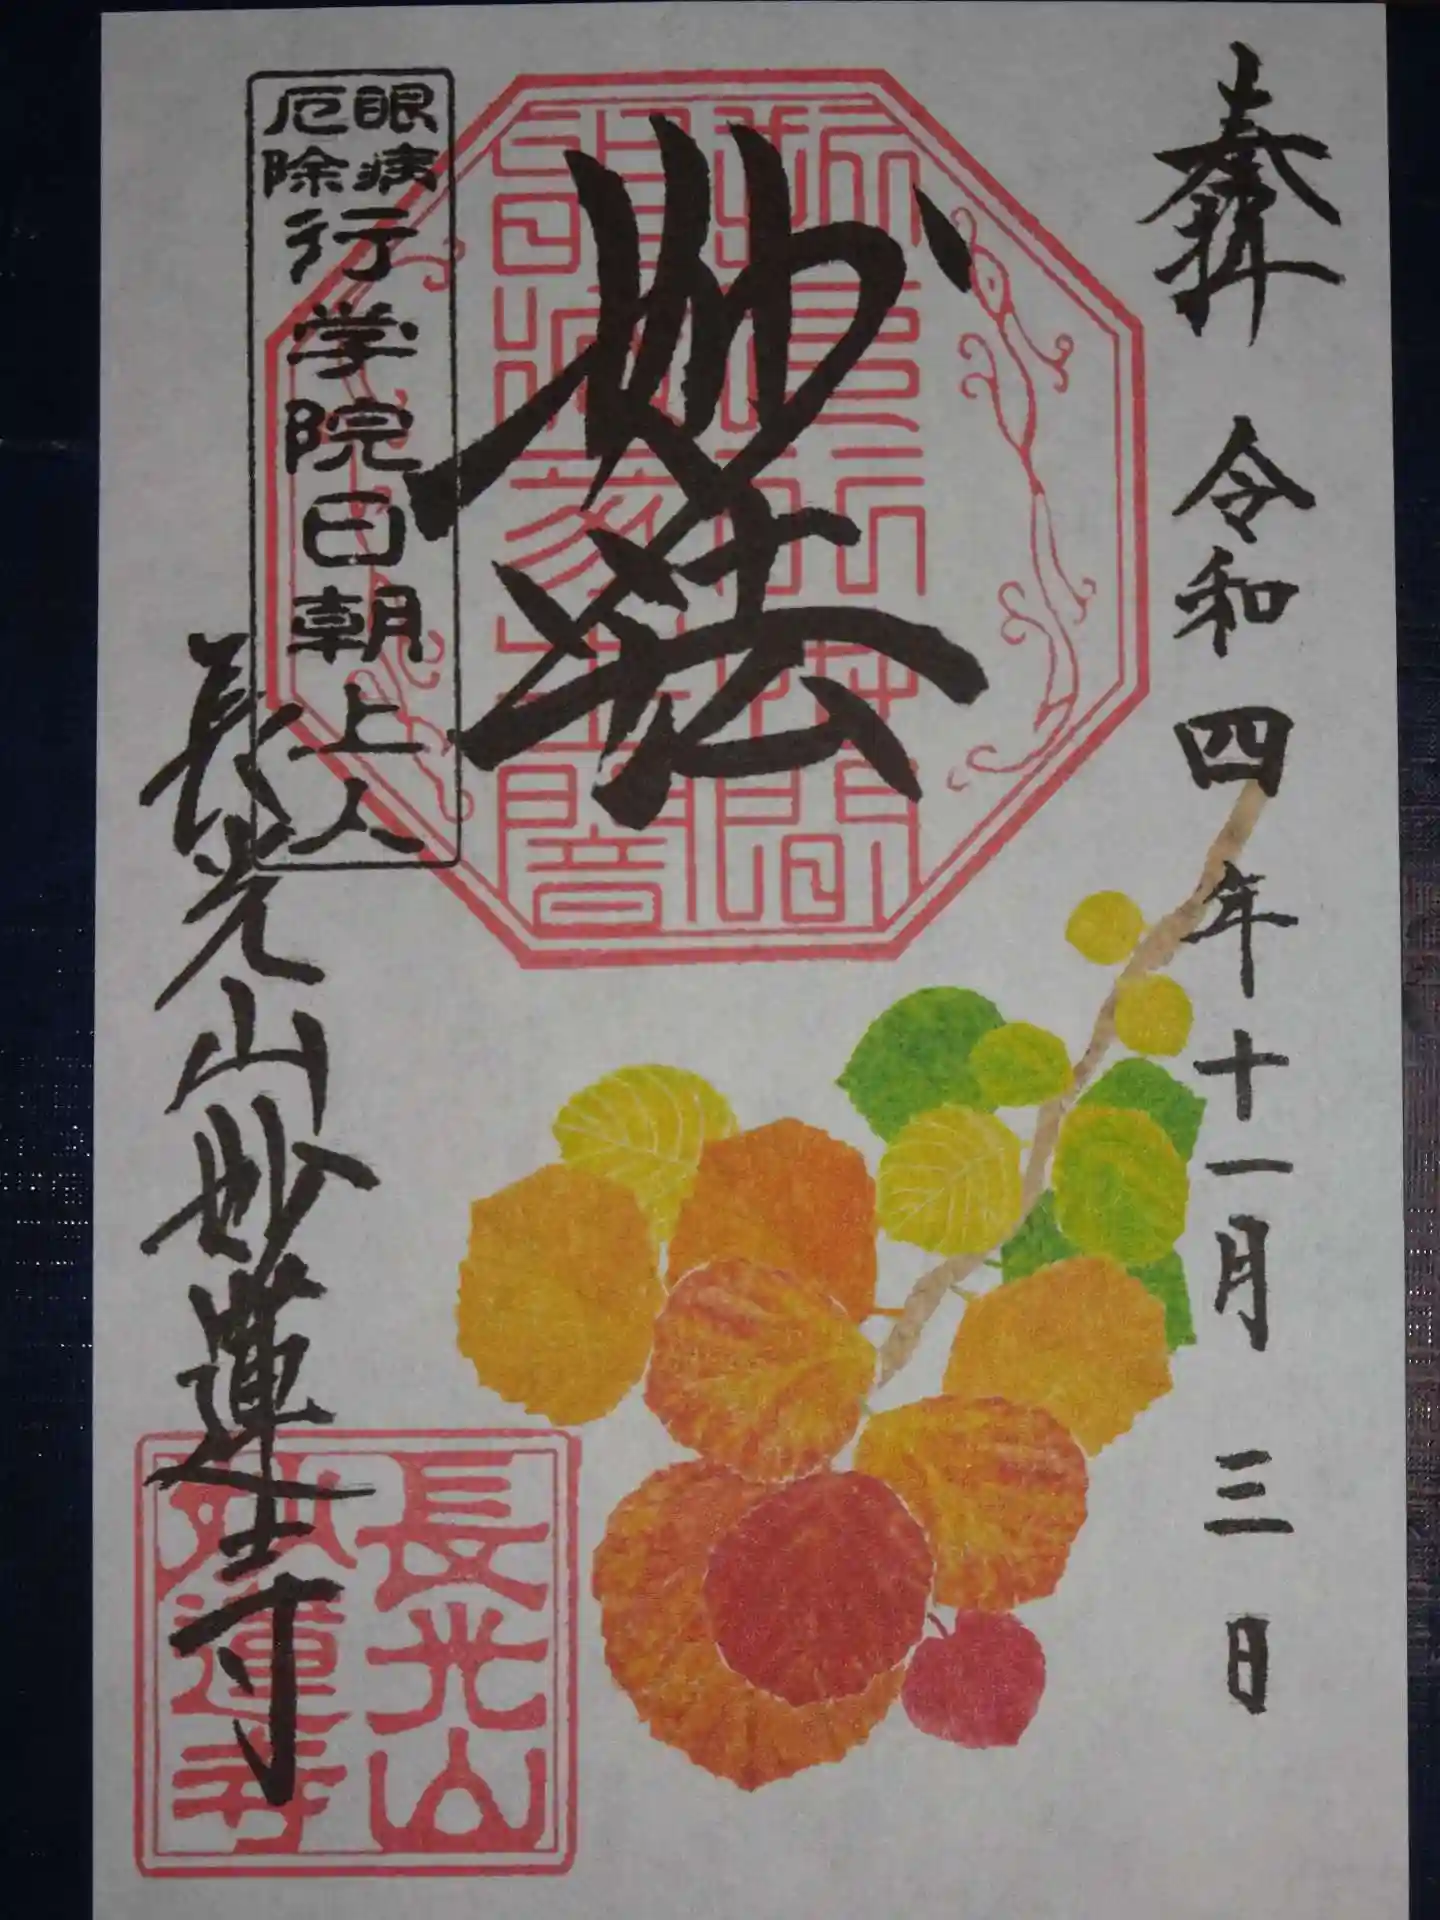 奉拝
令和四年十一月三日
妙法
眼病
厄除
行学院日朝上人
長光山妙蓮寺
長光山
妙蓮寺